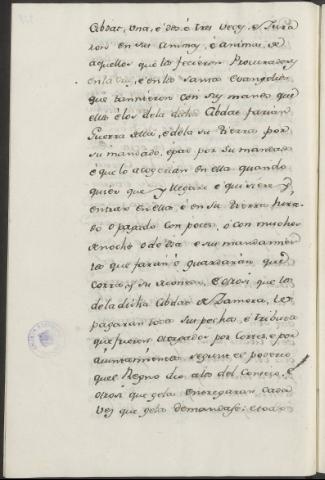 Cibdat, una, é dos é tres veces, é Jura
ron en sus animas, é animas de
aquellos que los ficieron Procuradores
en la Cruz, é en los santos Evangelios
que tannieron con sus manos que
ellos é los de la dicha Cibdat farian
Guerra della, é de la su tierra por
su mandado, é paz por su mandado
é que lo acogerian en ella quando
quier que y llegare é quisiere
entrar en ella, é en su tierra Jura
do ó pagado con pocos, ó con muchos
de noche ó de dia é sus mandamien
tos que faran é guardarán que
corra y su moneda, é otrosi que los
de la dicha Cibdat de Zamora, le
pagaran todos sus pechos, é tributos
que fueron otorgados por Cortes, é por
ayuntamientos segunt el poderio
quel Regno dio a los del Consejo, é
otrosi que gela entregaran cada
vez que gela demandase: é todo